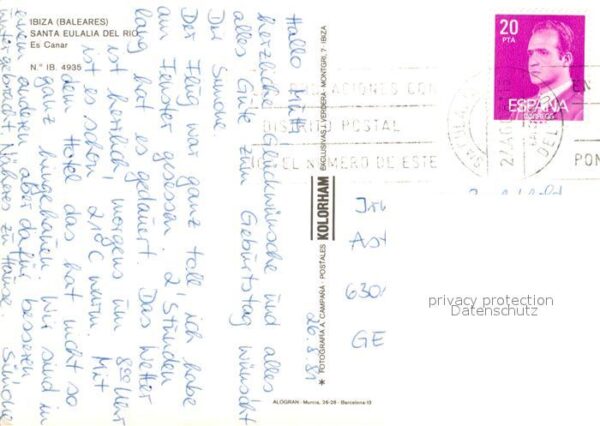 IBIZA (BALEARES)
SANTA EULALIA DEL RIO
Es Canar
N.º IB. 4935
20
PTA
ESPAÑA
CORREOS
DISTRITO POSTAL
EL NUMERO DE ESTE
EN
PON
26.8.81
Hallo Mutti
herzliche Glückwünsche und alles
alles Gute zum Geburtstag wünscht
Dir Simone
Der Flug war ganz toll, ich habe
am Fenster gesessen. 2 Stunden
lang hat es gedauert. Das Wetter
ist herrlich, morgens um 8 Uhr
ist es schon 21°C warm. Mit
dem Hotel das hat nicht so
ganz hingehauen. Wir sind im
einem anderen aber dafür besseren
untergebracht. Näheres zu Hause. Simone
* FOTOGRAFIA A. CAMPAÑA - POSTALES KOLORHAM EXCLUSIVAS J. VERDERA - MONTGRI, 7 - IBIZA
ALOGRAN - Murcia, 26-28 - Barcelona-13
Ast
630
GE
privacy protection
Datenschutz